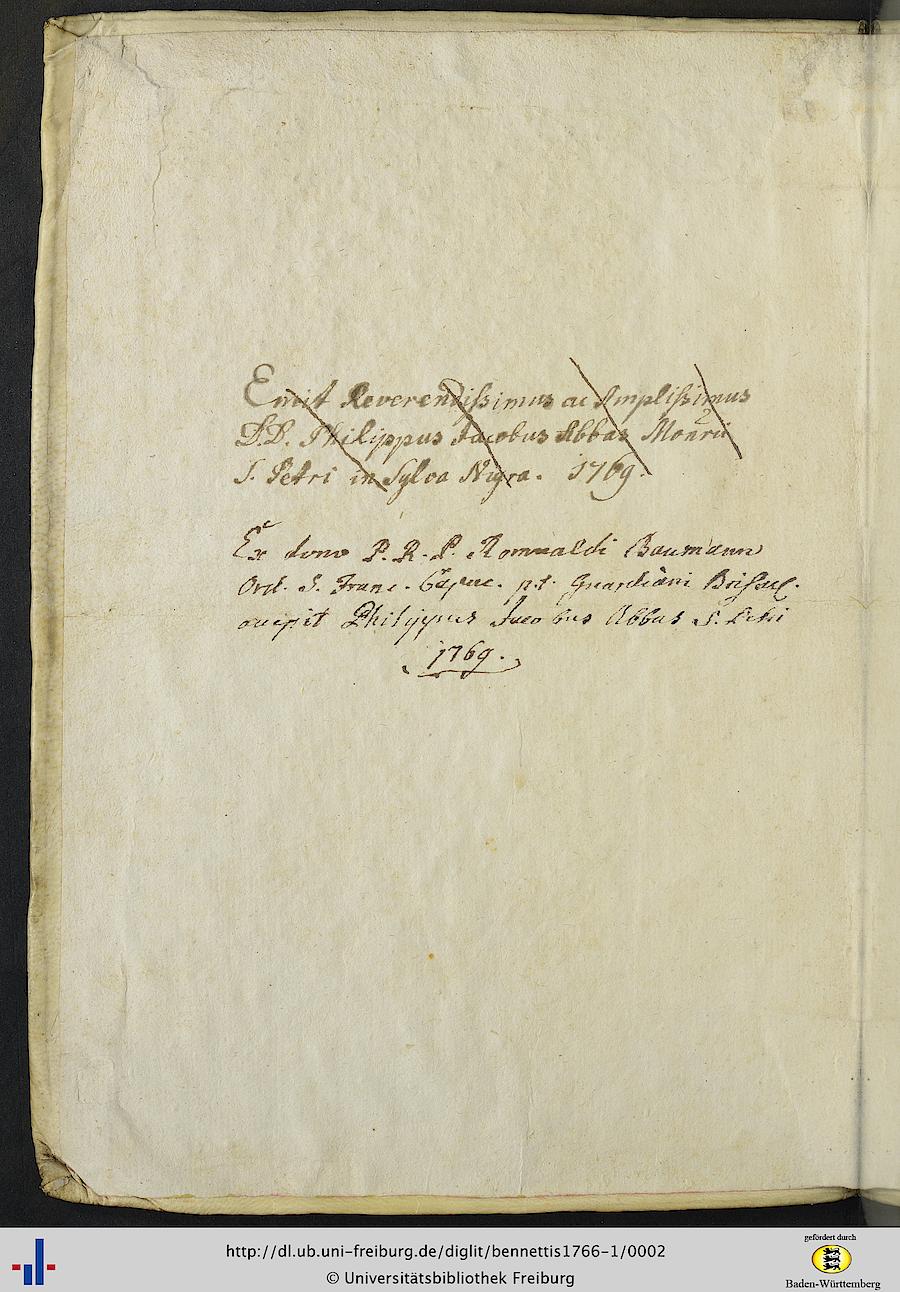 Emit Reverendissimus ac Amplissimus
D.D. Philippus Jacobus Abbas Monrii
S. Petri in Sylva Nigra. 1769.
Ex dono P. R. P. Romualdi Baumann
Ord. S. Franc. Capuc. p.t. Guardiani Brisac.
accepit Philippus Jacobus Abbas S. Petri
1769.
http://dl.ub.uni-freiburg.de/diglit/bennettis1766-1/0002
© Universitätsbibliothek Freiburg
gefördert durch
Baden-Württemberg